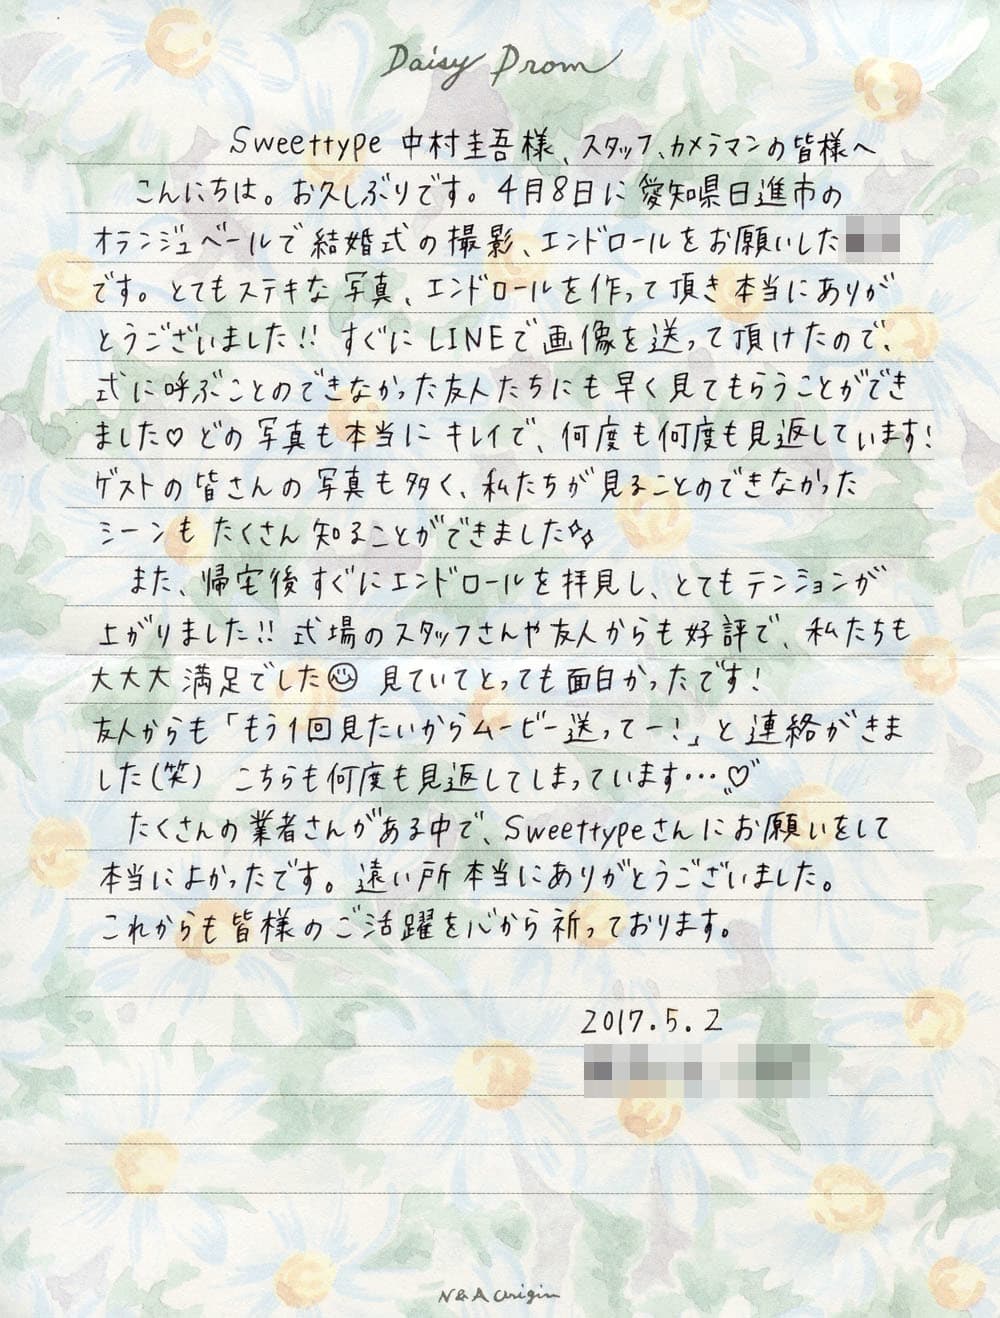 Daisy Prom
Sweettype 中村圭吾様、スタッフ、カメラマンの皆様へ
こんにちは。お久しぶりです。4月8日に愛知県日進市の
オランジュベールで結婚式の撮影、エンドロールをお願いした
です。とてもステキな写真、エンドロールを作って頂き本当にありが
とうございました!! すぐにLINEで画像を送って頂けたので、
式に呼ぶことのできなかった友人たちにも早く見てもらうことができ
ました♡ どの写真も本当にキレイで、何度も何度も見返しています!
ゲストの皆さんの写真も多く、私たちが見ることのできなかった
シーンもたくさん知ることができました
また、帰宅後すぐにエンドロールを拝見し、とてもテンションが
上がりました!! 式場のスタッフさんや友人からも好評で、私たちも
大大大満足でした 見ていてとっても面白かったです!
友人からも「もう1回見たいからムービー送ってー!」と連絡がきま
した(笑) こちらも何度も見返してしまっています…♡
たくさんの業者さんがある中で、Sweettypeさんにお願いをして
本当によかったです。遠い所本当にありがとうございました。
これからも皆様のご活躍を心から祈っております。
2017.5.2
N&A origin